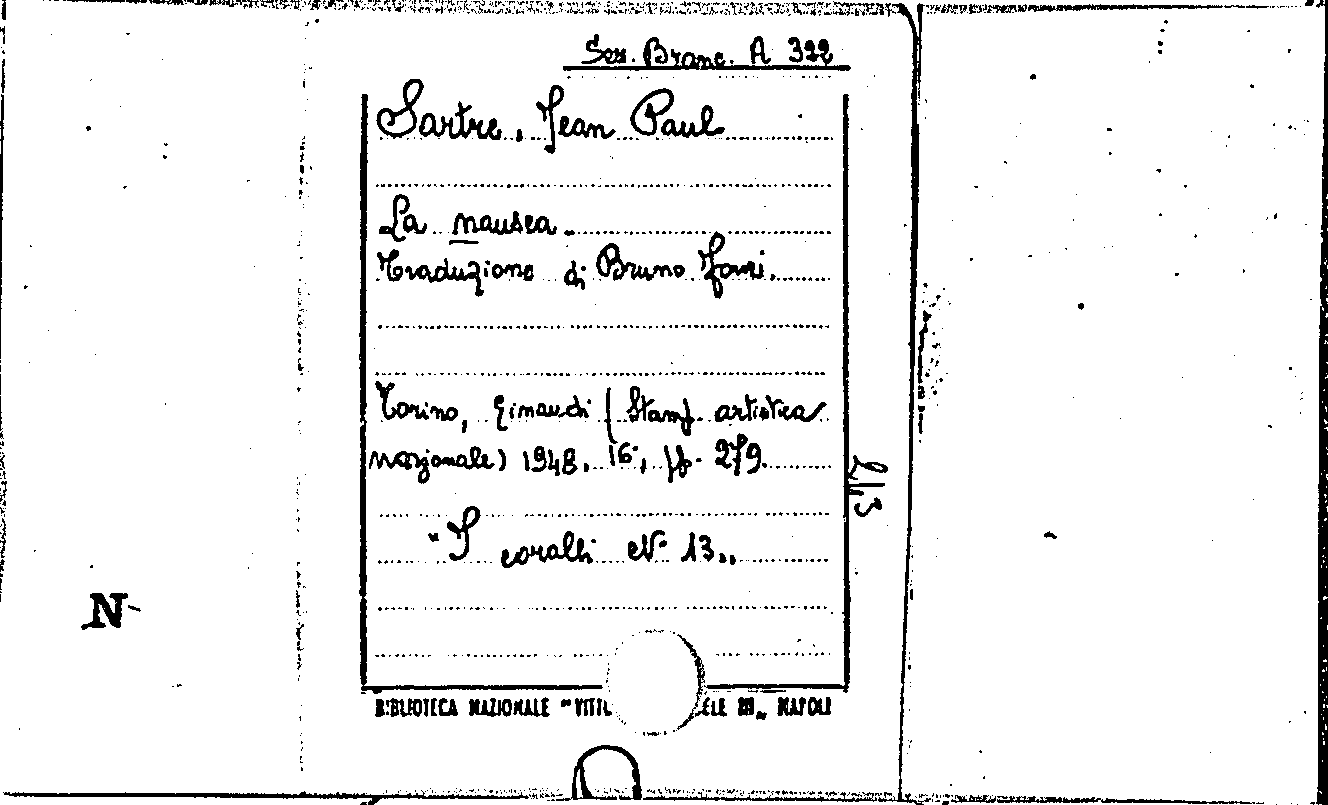 Sez. Branc. A 322
Sartre, Jean Paul
La nausea.
Traduzione di Bruno Fonzi.
Torino, Einaudi (Stamp. artistica
nazionale) 1948. 16°, pp. 279.
"I coralli N° 13„
2/3
N
BIBLIOTECA NAZIONALE "VITT ELE III„ NAPOLI